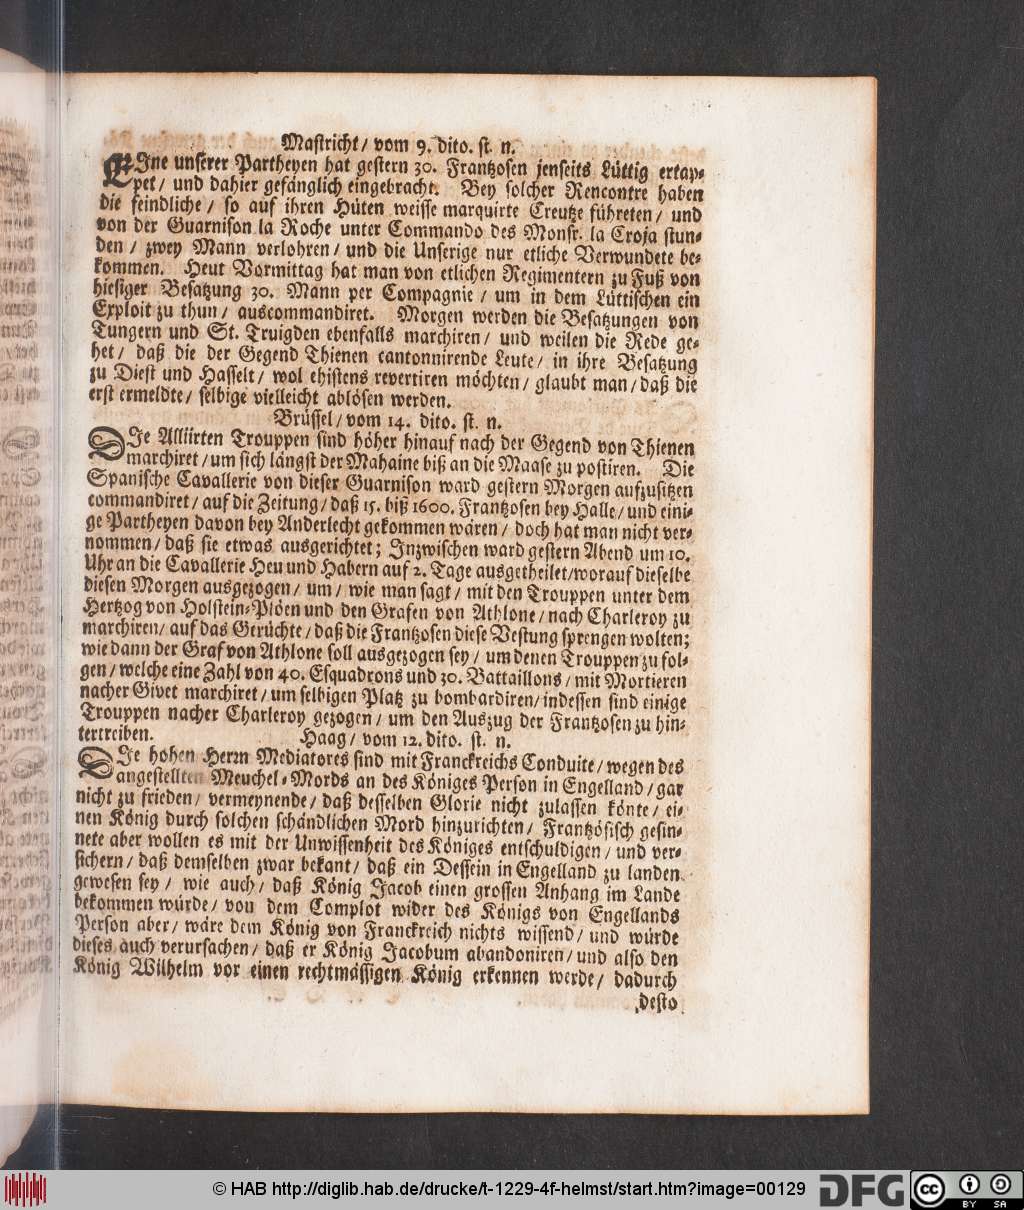 Mastricht/ vom 9. dito. st. n.
EIne unserer Partheyen hat gestern 30. Frantzosen jenseits Lüttig ertap-
pet/ und dahier gefänglich eingebracht. Bey solcher Rencontre haben
die feindliche/ so auf ihren Hüten weisse marquirte Creutze führeten/ und
von der Guarnison la Roche unter Commando des Monsr. la Croja stun-
den/ zwey Mann verlohren/ und die Unserige nur etliche Verwundete be-
kommen. Heut Vormittag hat man von etlichen Regimentern zu Fuß von
hiesiger Besatzung 30. Mann per Compagnie/ um in dem Lüttischen ein
Exploit zu thun/ auscommandiret. Morgen werden die Besatzungen von
Tungern und St. Truigden ebenfalls marchiren/ und weilen die Rede ge-
het/ daß die der Gegend Thienen cantonnirende Leute/ in ihre Besatzung
zu Diest und Hasselt/ wol ehistens revertiren möchten/ glaubt man/ daß die
erst ermeldte/ selbige vielleicht ablösen werden.
Brüssel/ vom 14. dito. st. n.
DIe Alliirten Trouppen sind höher hinauf nach der Gegend von Thienen
marchiret/ um sich längst der Mahaine biß an die Maase zu postiren. Die
Spanische Cavallerie von dieser Guarnison ward gestern Morgen aufzusitzen
commandiret/ auf die Zeitung/ daß 15. biß 1600. Frantzosen bey Halle/ und eini-
ge Partheyen davon bey Anderlecht gekommen wären/ doch hat man nicht ver-
nommen/ daß sie etwas ausgerichtet; Inzwischen ward gestern Abend um 10.
Uhr an die Cavallerie Heu und Habern auf 2. Tage ausgetheilet/ worauf dieselbe
diesen Morgen ausgezogen/ um/ wie man sagt/ mit den Trouppen unter dem
Hertzog von Holstein-Plöen und den Grafen von Athlone/ nach Charleroy zu
marchiren/ auf das Gerüchte/ daß die Frantzosen diese Vestung sprengen wolten;
wie dann der Graf von Athlone soll ausgezogen sey/ um denen Trouppen zu fol-
gen/ welche eine Zahl von 40. Esquadrons und 30. Battaillons/ mit Mortieren
nacher Givet marchiret/ um selbigen Platz zu bombardiren/ indessen sind einige
Trouppen nacher Charleroy gezogen/ um den Auszug der Frantzosen zu hin-
tertreiben.
Haag/ vom 12. dito. st. n.
DIe hohen Herrn Mediatores sind mit Franckreichs Conduite/ wegen des
angestellten Meuchel-Mords an des Königes Person in Engelland/ gar
nicht zu frieden/ vermeynende/ daß desselben Glorie nicht zulassen könte/ ei-
nen König durch solchen schändlichen Mord hinzurichten/ Frantzösisch gesin-
nete aber wollen es mit der Unwissenheit des Königes entschuldigen/ und ver-
sichern/ daß demselben zwar bekant/ daß ein Dessein in Engelland zu landen
gewesen sey/ wie auch/ daß König Jacob einen grossen Anhang im Lande
bekommen würde/ von dem Complot wider des Königs von Engellands
Person aber/ wäre dem König von Franckreich nichts wissend/ und würde
dieses auch verursachen/ daß er König Jacobum abandoniren/ und also den
König Wilhelm vor einen rechtmässigen König erkennen werde/ dadurch
desto
© HAB http://diglib.hab.de/drucke/t-1229-4f-helmst/start.htm?image=00129
DFG
cc BY SA